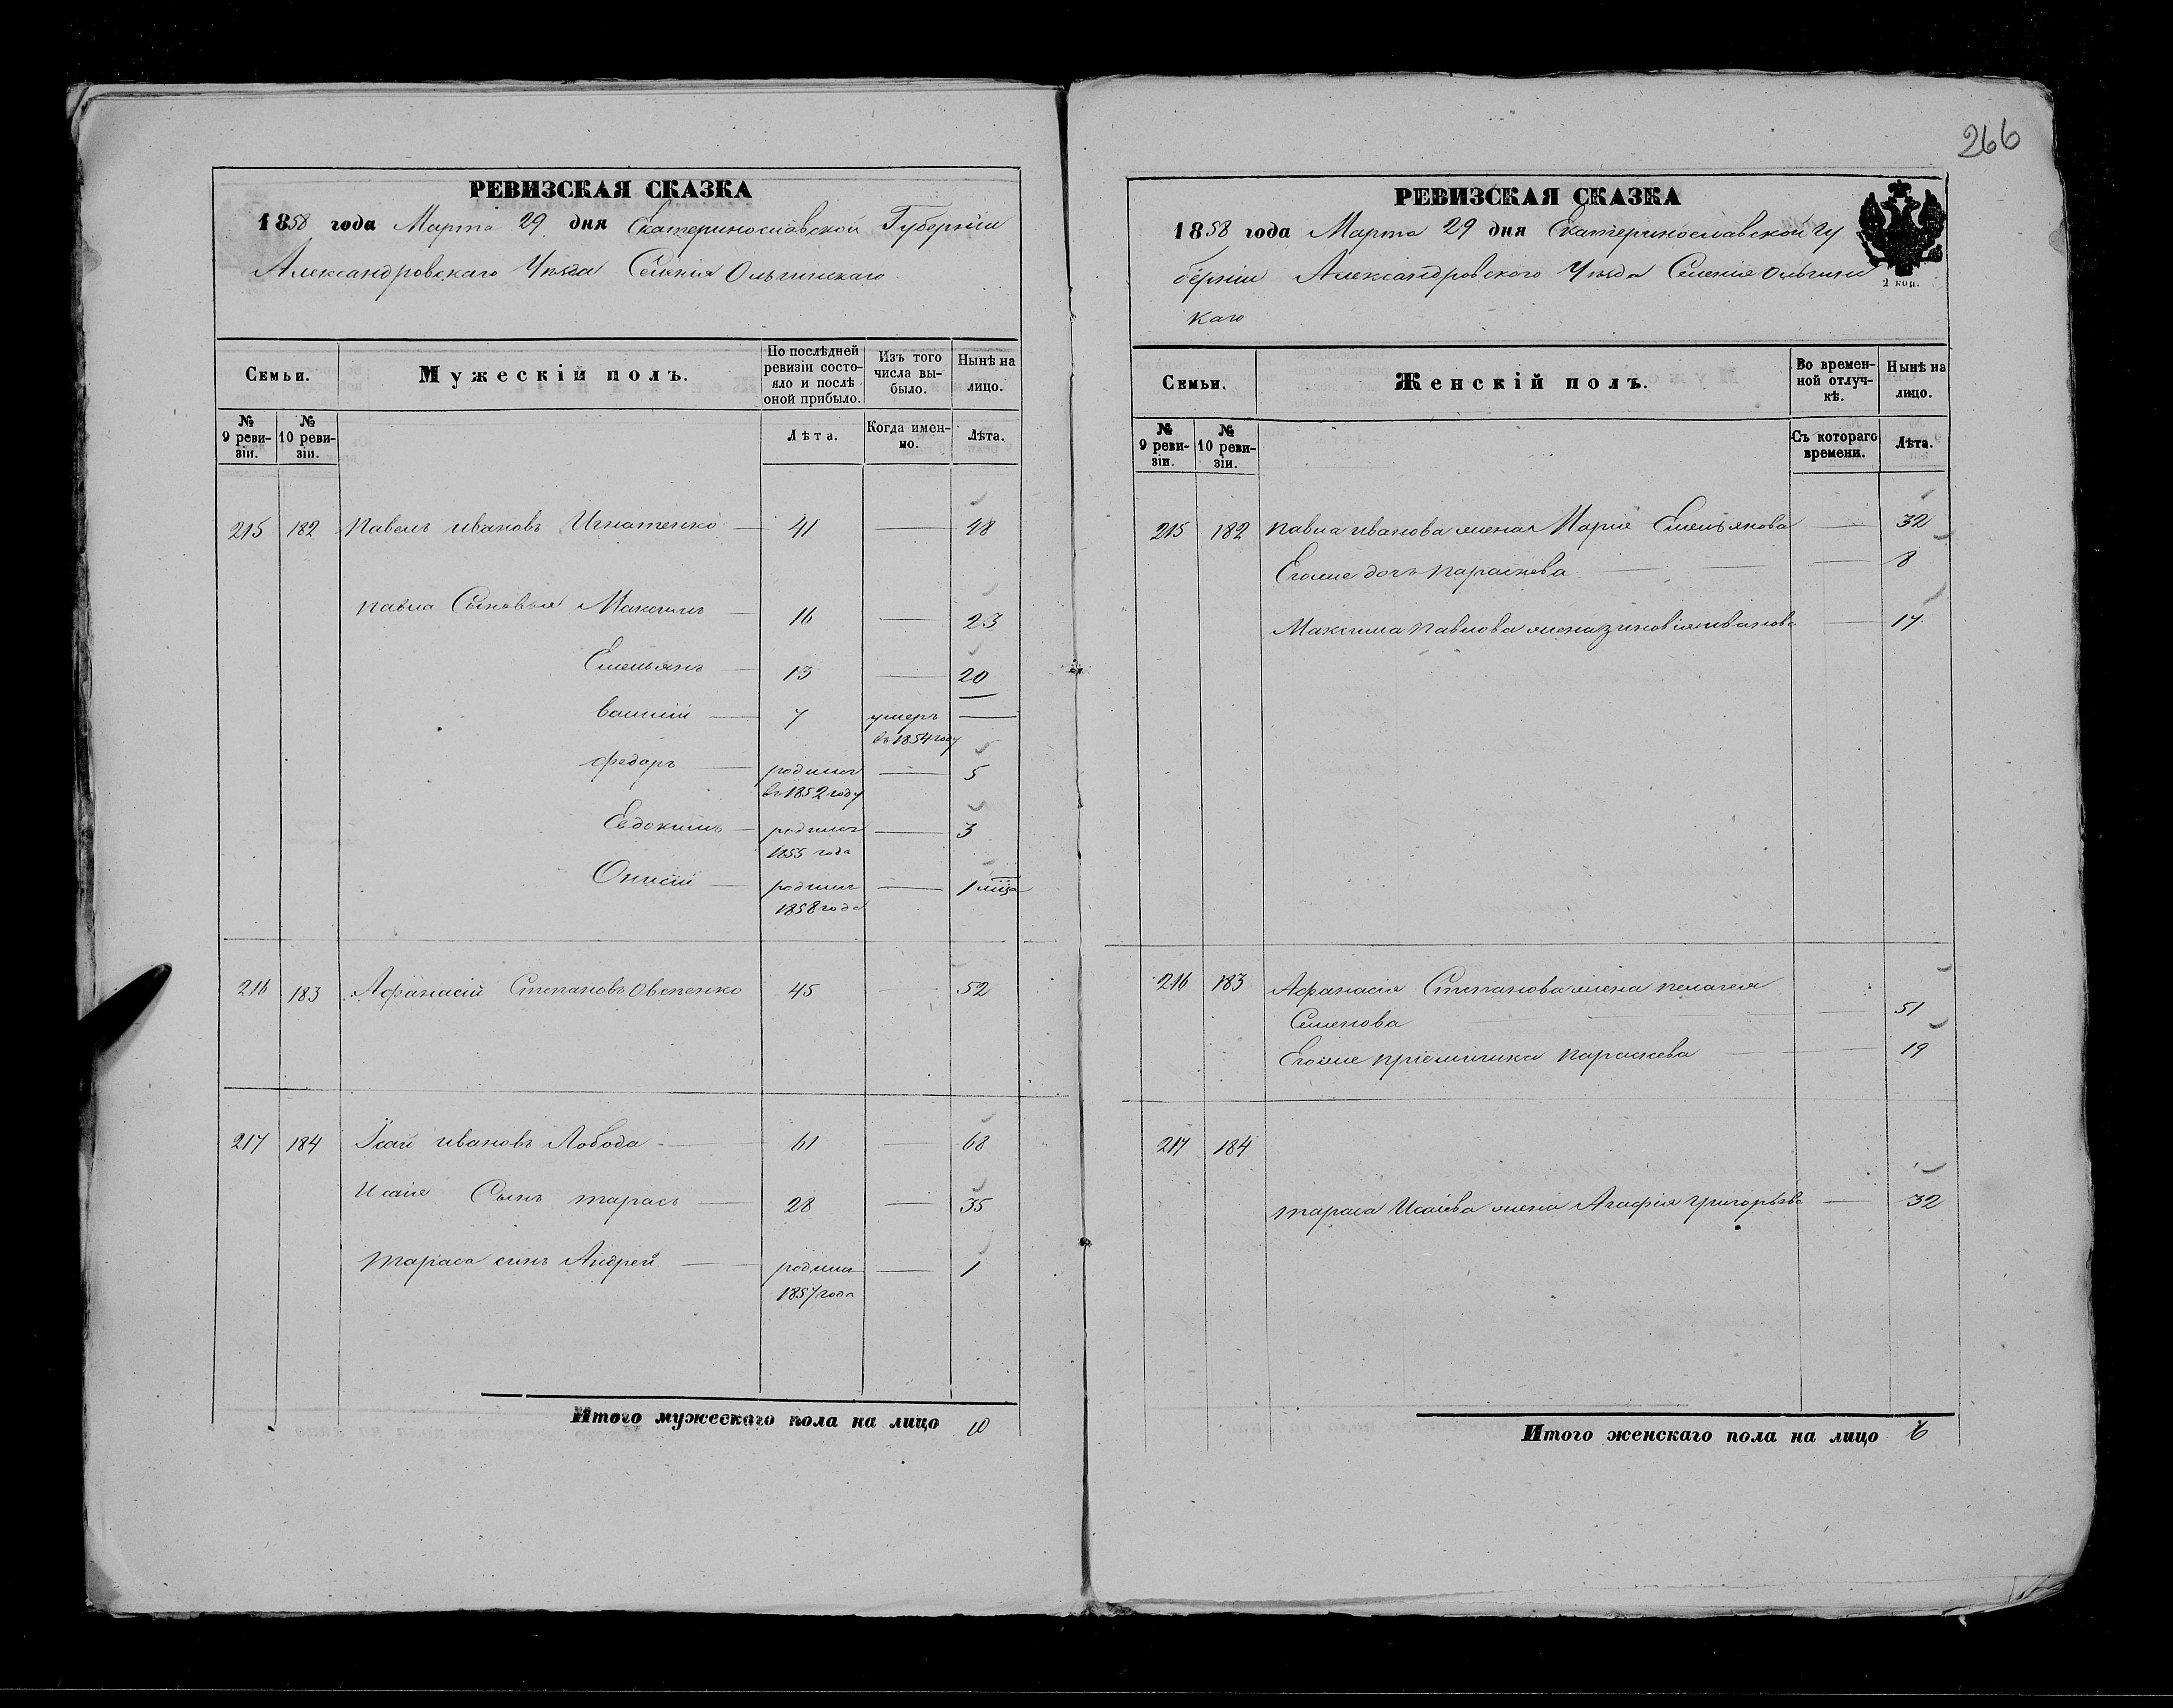 266
РЕВИЗСКАЯ СКАЗКА
1858 года Марта 29 дня Екатеринославской Губерніи
Александровскаго Уѣзда Селенія Ольгинскаго.
Семьи.
Мужескій полъ.
По послѣдней ревизіи состояло и послѣ оной прибыло.
Изъ того числа выбыло.
Нынѣ на лицо.
№ 9 ревизіи.
№ 10 ревизіи.
Лѣта.
Когда именно.
Лѣта.
215 182 Павелъ Ивановъ Игнатенко — 41 — 48
Павла Сыновья Максимъ — 16 — 23
Емельянъ — 13 — 20
Василій — 7 умеръ —
въ 1854 году
Федоръ — родился — 5
въ 1852 году
Евдокимъ — родился — 3
1855 года
Онисій — родился — 1 м-ца
1858 года
216 183 Афанасій Степановъ Овсенко 45 — 52
217 184 Ісай Ивановъ Лобода — 61 — 68
Исаія Сынъ Тарасъ — 28 — 35
Тараса сынъ Андрей — родился — 1
1857 года
Итого мужескаго пола на лицо 10
РЕВИЗСКАЯ СКАЗКА
1858 года Марта 29 дня Екатеринославской Гу
берніи Александровского Уѣзда Селенія Ольгинс
каго
2 коп.
Семьи.
Женскій полъ.
Во временной отлучкѣ.
Нынѣ на лицо.
№ 9 ревизіи.
№ 10 ревизіи.
Съ котораго времени.
Лѣта.
215 182 Павла Иванова жена Марія Емельянова — 32
Егоже дочь Параскева — 8
Максима Павлова жена Зиновія Иванова — 17
216 183 Афанасія Степанова жена Пелагея
Семенова — 51
Егоже пріемишка Параскева — 19
217 184
Тараса Исаіева жена Агафія Григорьева — 32
Итого женскаго пола на лицо 6